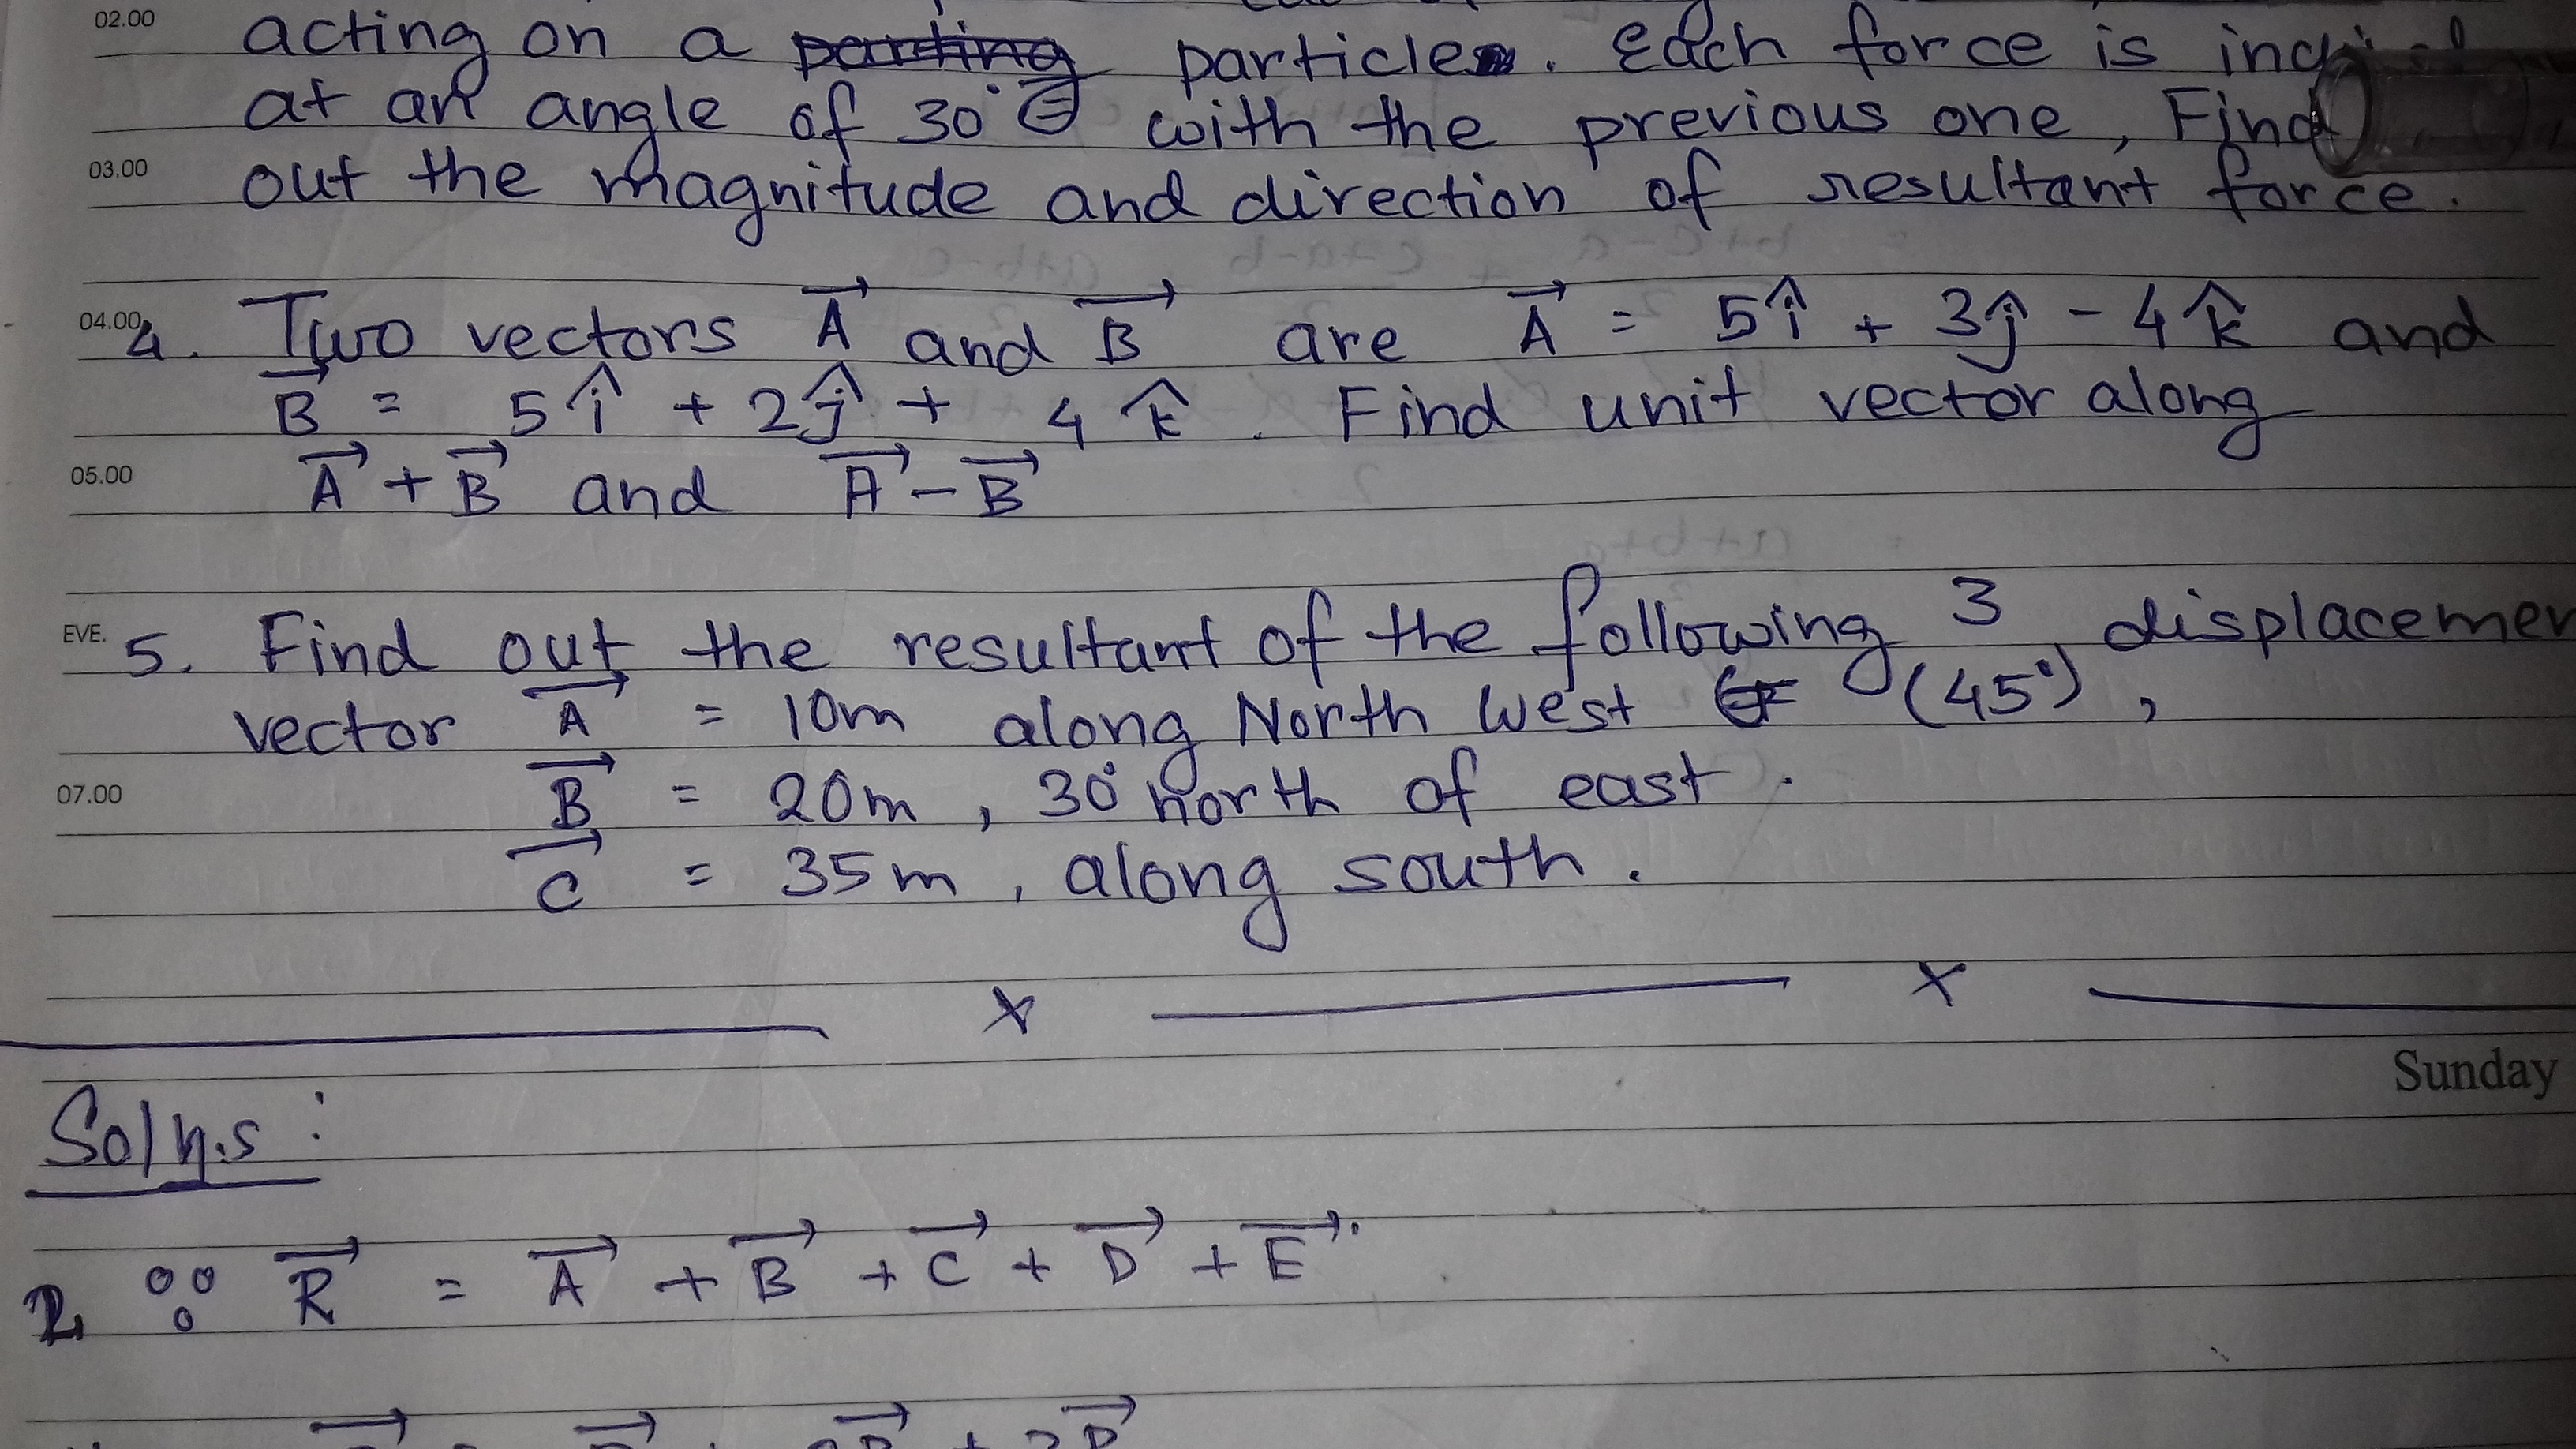 02.00 acting on a particle. Each force is
at an angle of 30° with the previous one, Find
03.00 out the magnitude and direction of resultant force.
04.00 4. Two vectors A⃗ and B⃗ are A⃗ = 5î + 3ĵ - 4k̂ and
B⃗ = 5î + 2ĵ + 4k̂. Find unit vector along
05.00 A⃗ + B⃗ and A⃗ - B⃗
EVE. 5. Find out the resultant of the following 3 displacemen
vector A⃗ = 10m along North West (45°),
07.00 B⃗ = 20m, 30° north of east.
C⃗ = 35m, along south.
x x
Sunday
Solns:
2. ∵ R⃗ = A⃗ + B⃗ + C⃗ + D⃗ + E⃗.